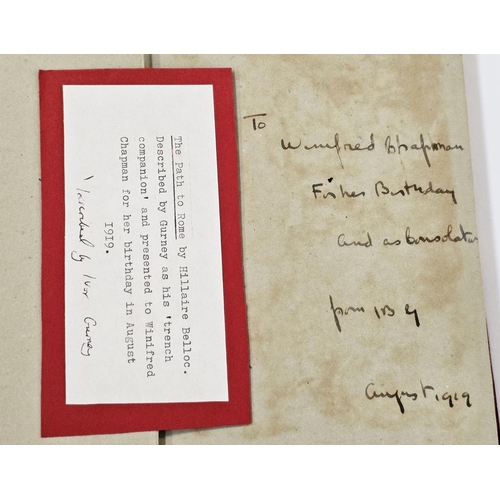 The Path to Rome by Hillaire Belloc.
Described by Gurney as his 'trench
companion' and presented to Winifred
Chapman for her birthday in August
1919.
'Inscribed by Ivor Gurney
To
Winifred Chapman
For her Birthday
And as Consolation
from I B G
August 1919